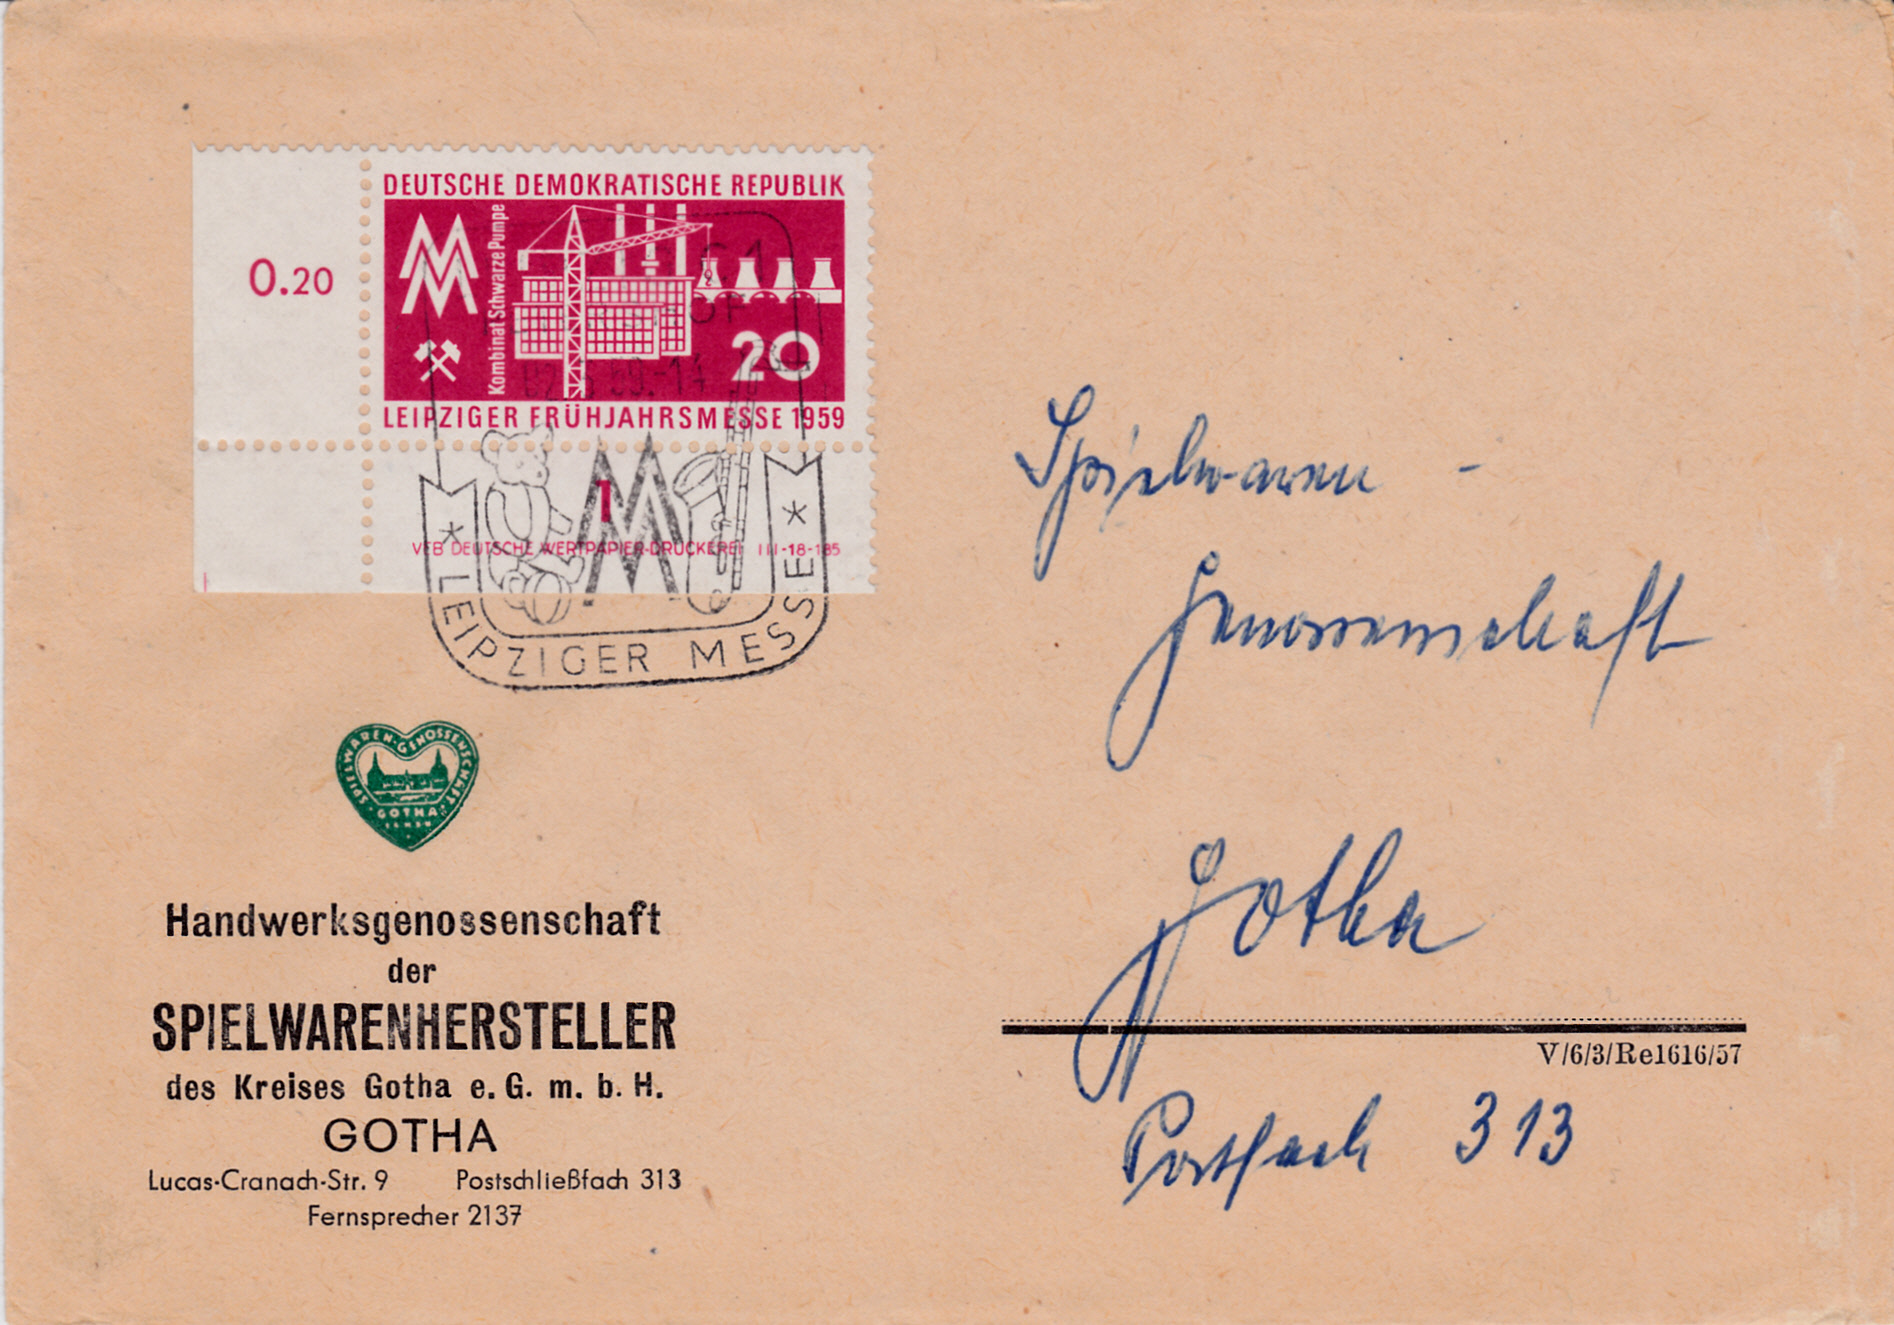 0.20
DEUTSCHE DEMOKRATISCHE REPUBLIK
Kombinat Schwarze Pumpe
20
LEIPZIGER FRÜHJAHRSMESSE 1959
1
VEB DEUTSCHE WERTPAPIER-DRUCKEREI III-18-185
C1
HOF
59.-14
* LEIPZIGER MESSE *
SPIELWAREN-GENOSSENSCHAFT
GOTHA
Handwerksgenossenschaft
der
SPIELWARENHERSTELLER
des Kreises Gotha e. G. m. b. H.
GOTHA
Lucas-Cranach-Str. 9 Postschließfach 313
Fernsprecher 2137
Spielwaren -
Genossenschaft
Gotha
V/6/3/Re1616/57
Postfach 313